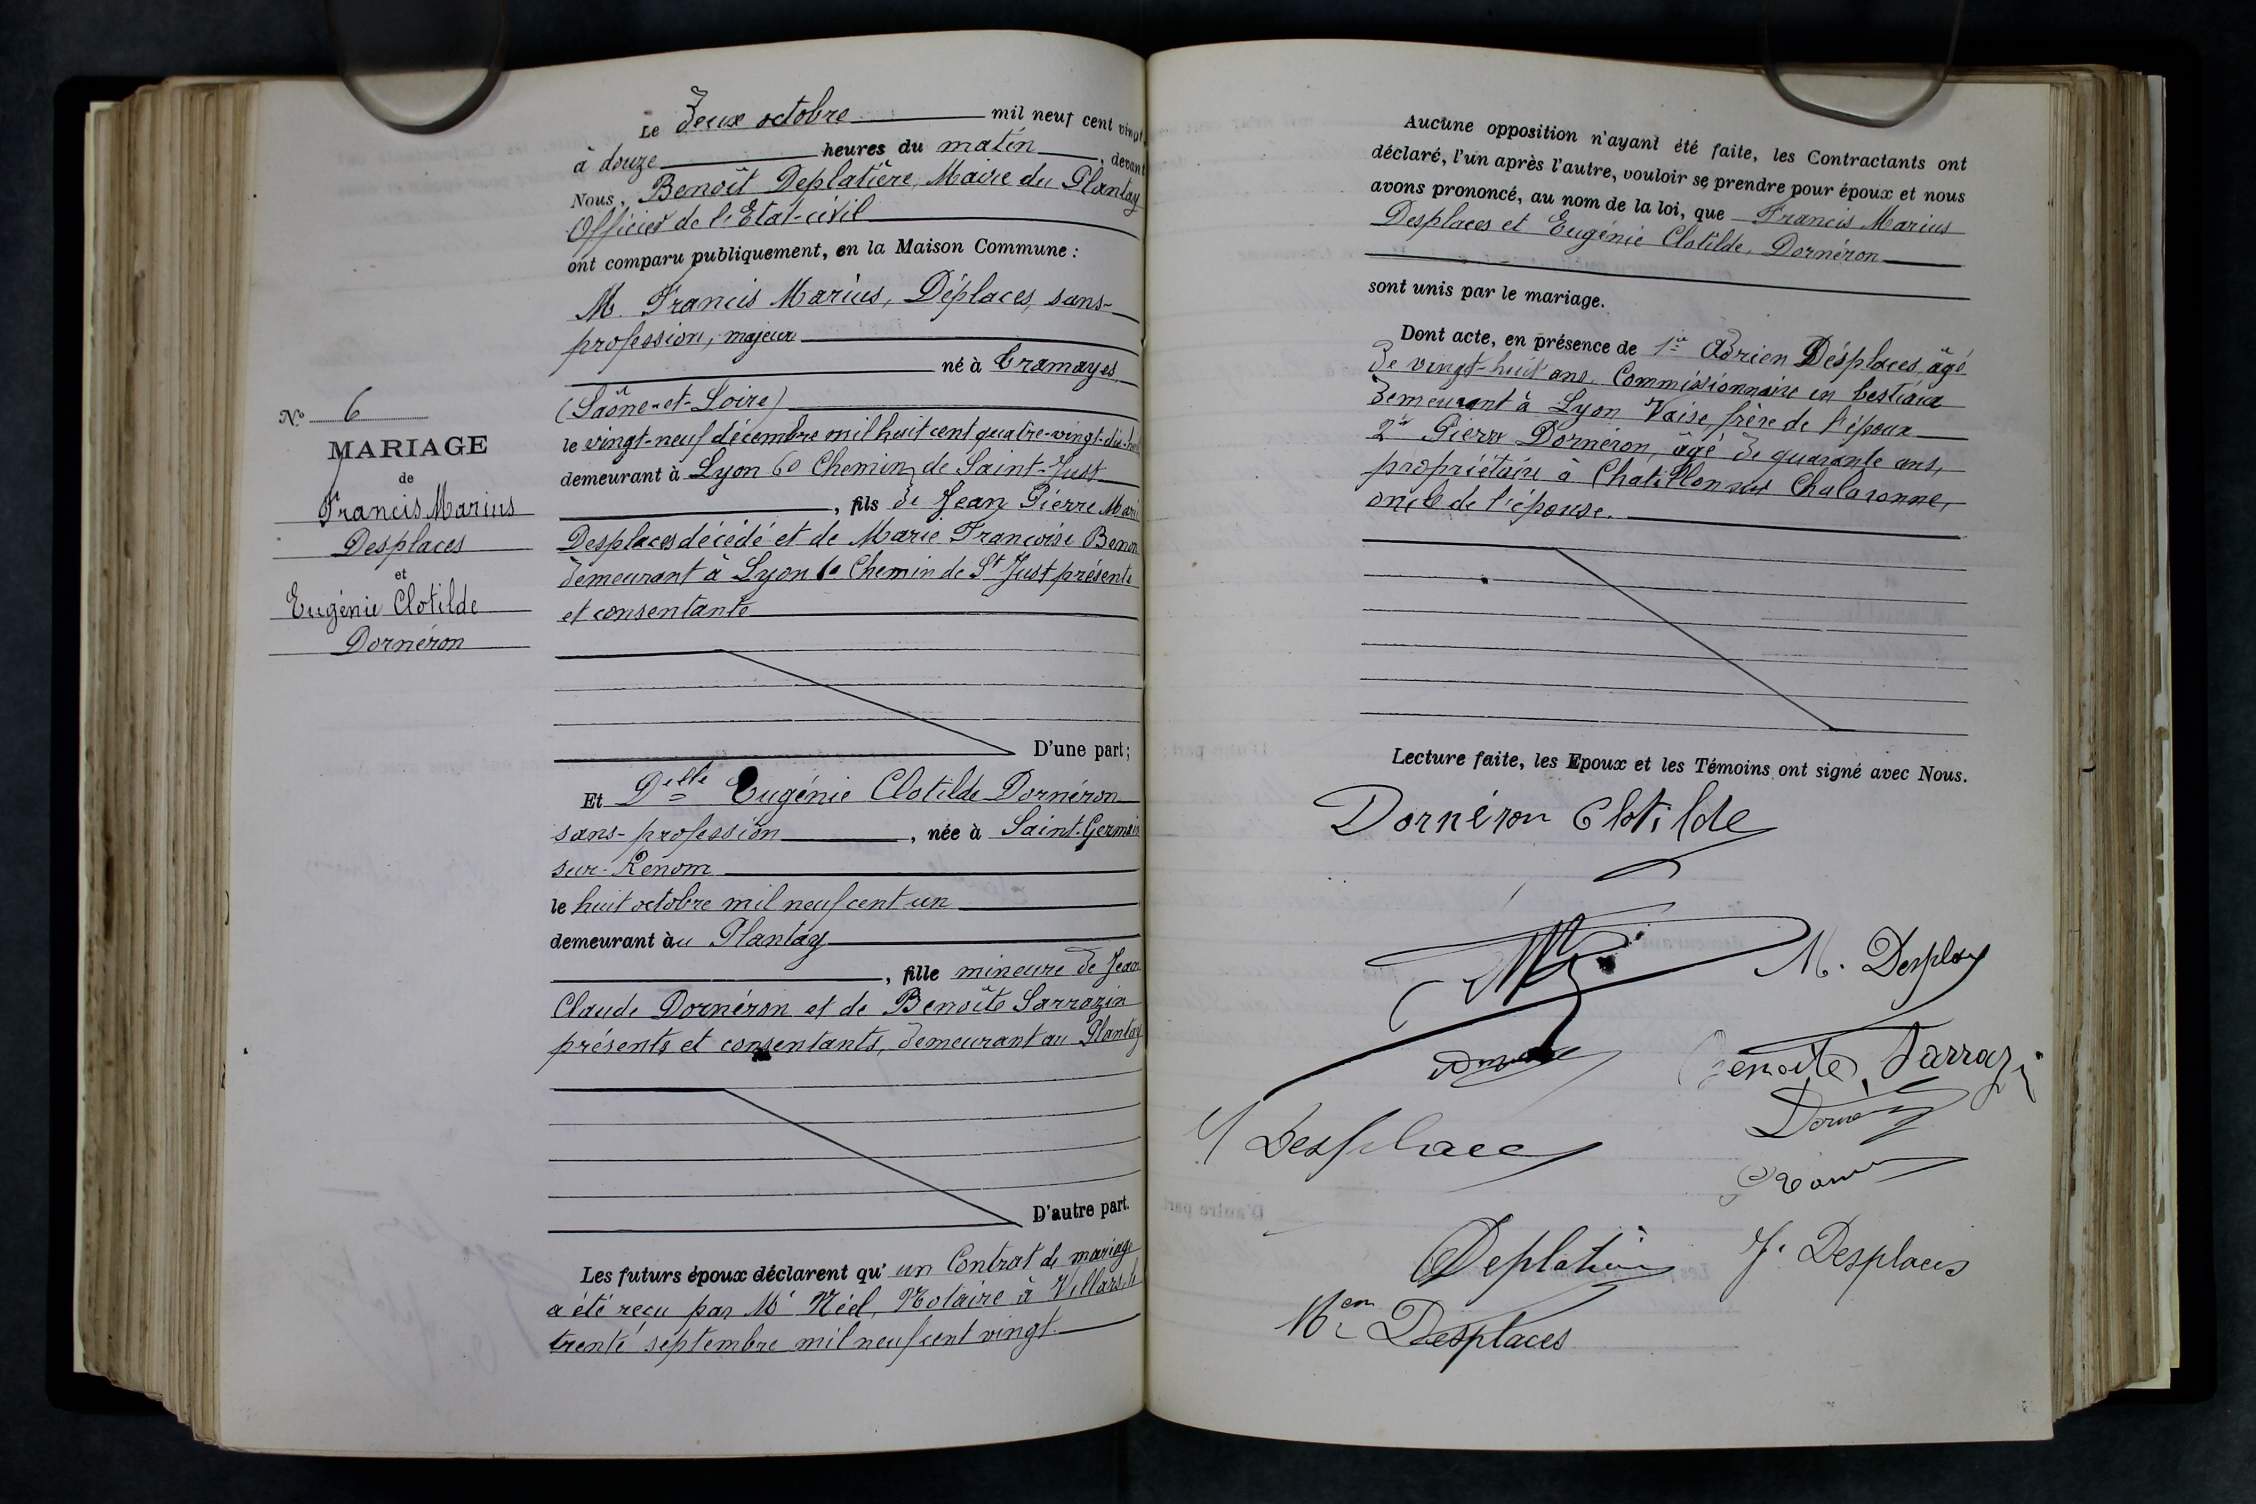 Le deux octobre mil neuf cent vingt
à douze heures du matin, devant
Nous, Benoît Deplatière, Maire du Plantay
Officier de l'Etat-civil
ont comparu publiquement, en la Maison Commune :
M. Francis Marius, Désplaces, sans-
profession, majeur
né à Tramayes
(Saône-et-Loire)
le vingt-neuf décembre mil huit cent quatre-vingt-dix-huit
demeurant à Lyon 60 Chemin de Saint-Just
, fils de Jean Pierre Marie
Desplaces décédé et de Marie Francoise Benon
demeurant à Lyon 60 Chemin de St Just présente
et consentante
D'une part;
Et Delle Eugénie Clotilde Dornéron
sans-profession, née à Saint-Germain
sur-Renom
le huit octobre mil neuf cent un
demeurant àu Plantay
, fille mineure de Jean
Claude Dornéron et de Benoîte Sarrazin
présents et consentants, demeurant au Plantay
D'autre part.
Les futurs époux déclarent qu' un Contrat de mariage
a été reçu par Me Néel, Notaire à Villars le
trente septembre mil neuf cent vingt.
No 6
MARIAGE
de
Francis Marius
Desplaces
et
Eugénie Clotilde
Dornéron
Aucune opposition n'ayant été faite, les Contractants ont
déclaré, l'un après l'autre, vouloir se prendre pour époux et nous
avons prononcé, au nom de la loi, que Francis Marius
Desplaces et Eugénie Clotilde, Dornéron
sont unis par le mariage.
Dont acte, en présence de 1er Adrien Désplaces, âgé
de vingt-huit ans, Commissionnaire en bestiaux
demeurant à Lyon Vaise, frère de l'époux
2e Pierre Dornéron, âgé de quarante ans,
propriétaire à Chatillon sur Chalaronne,
oncle de l'épouse.
Lecture faite, les Epoux et les Témoins ont signé avec Nous.
Dornéron Clotilde
M. Desplaces
Benoîte Sarrazin
Desplaces
Deplatière
J. Desplaces
Desplaces